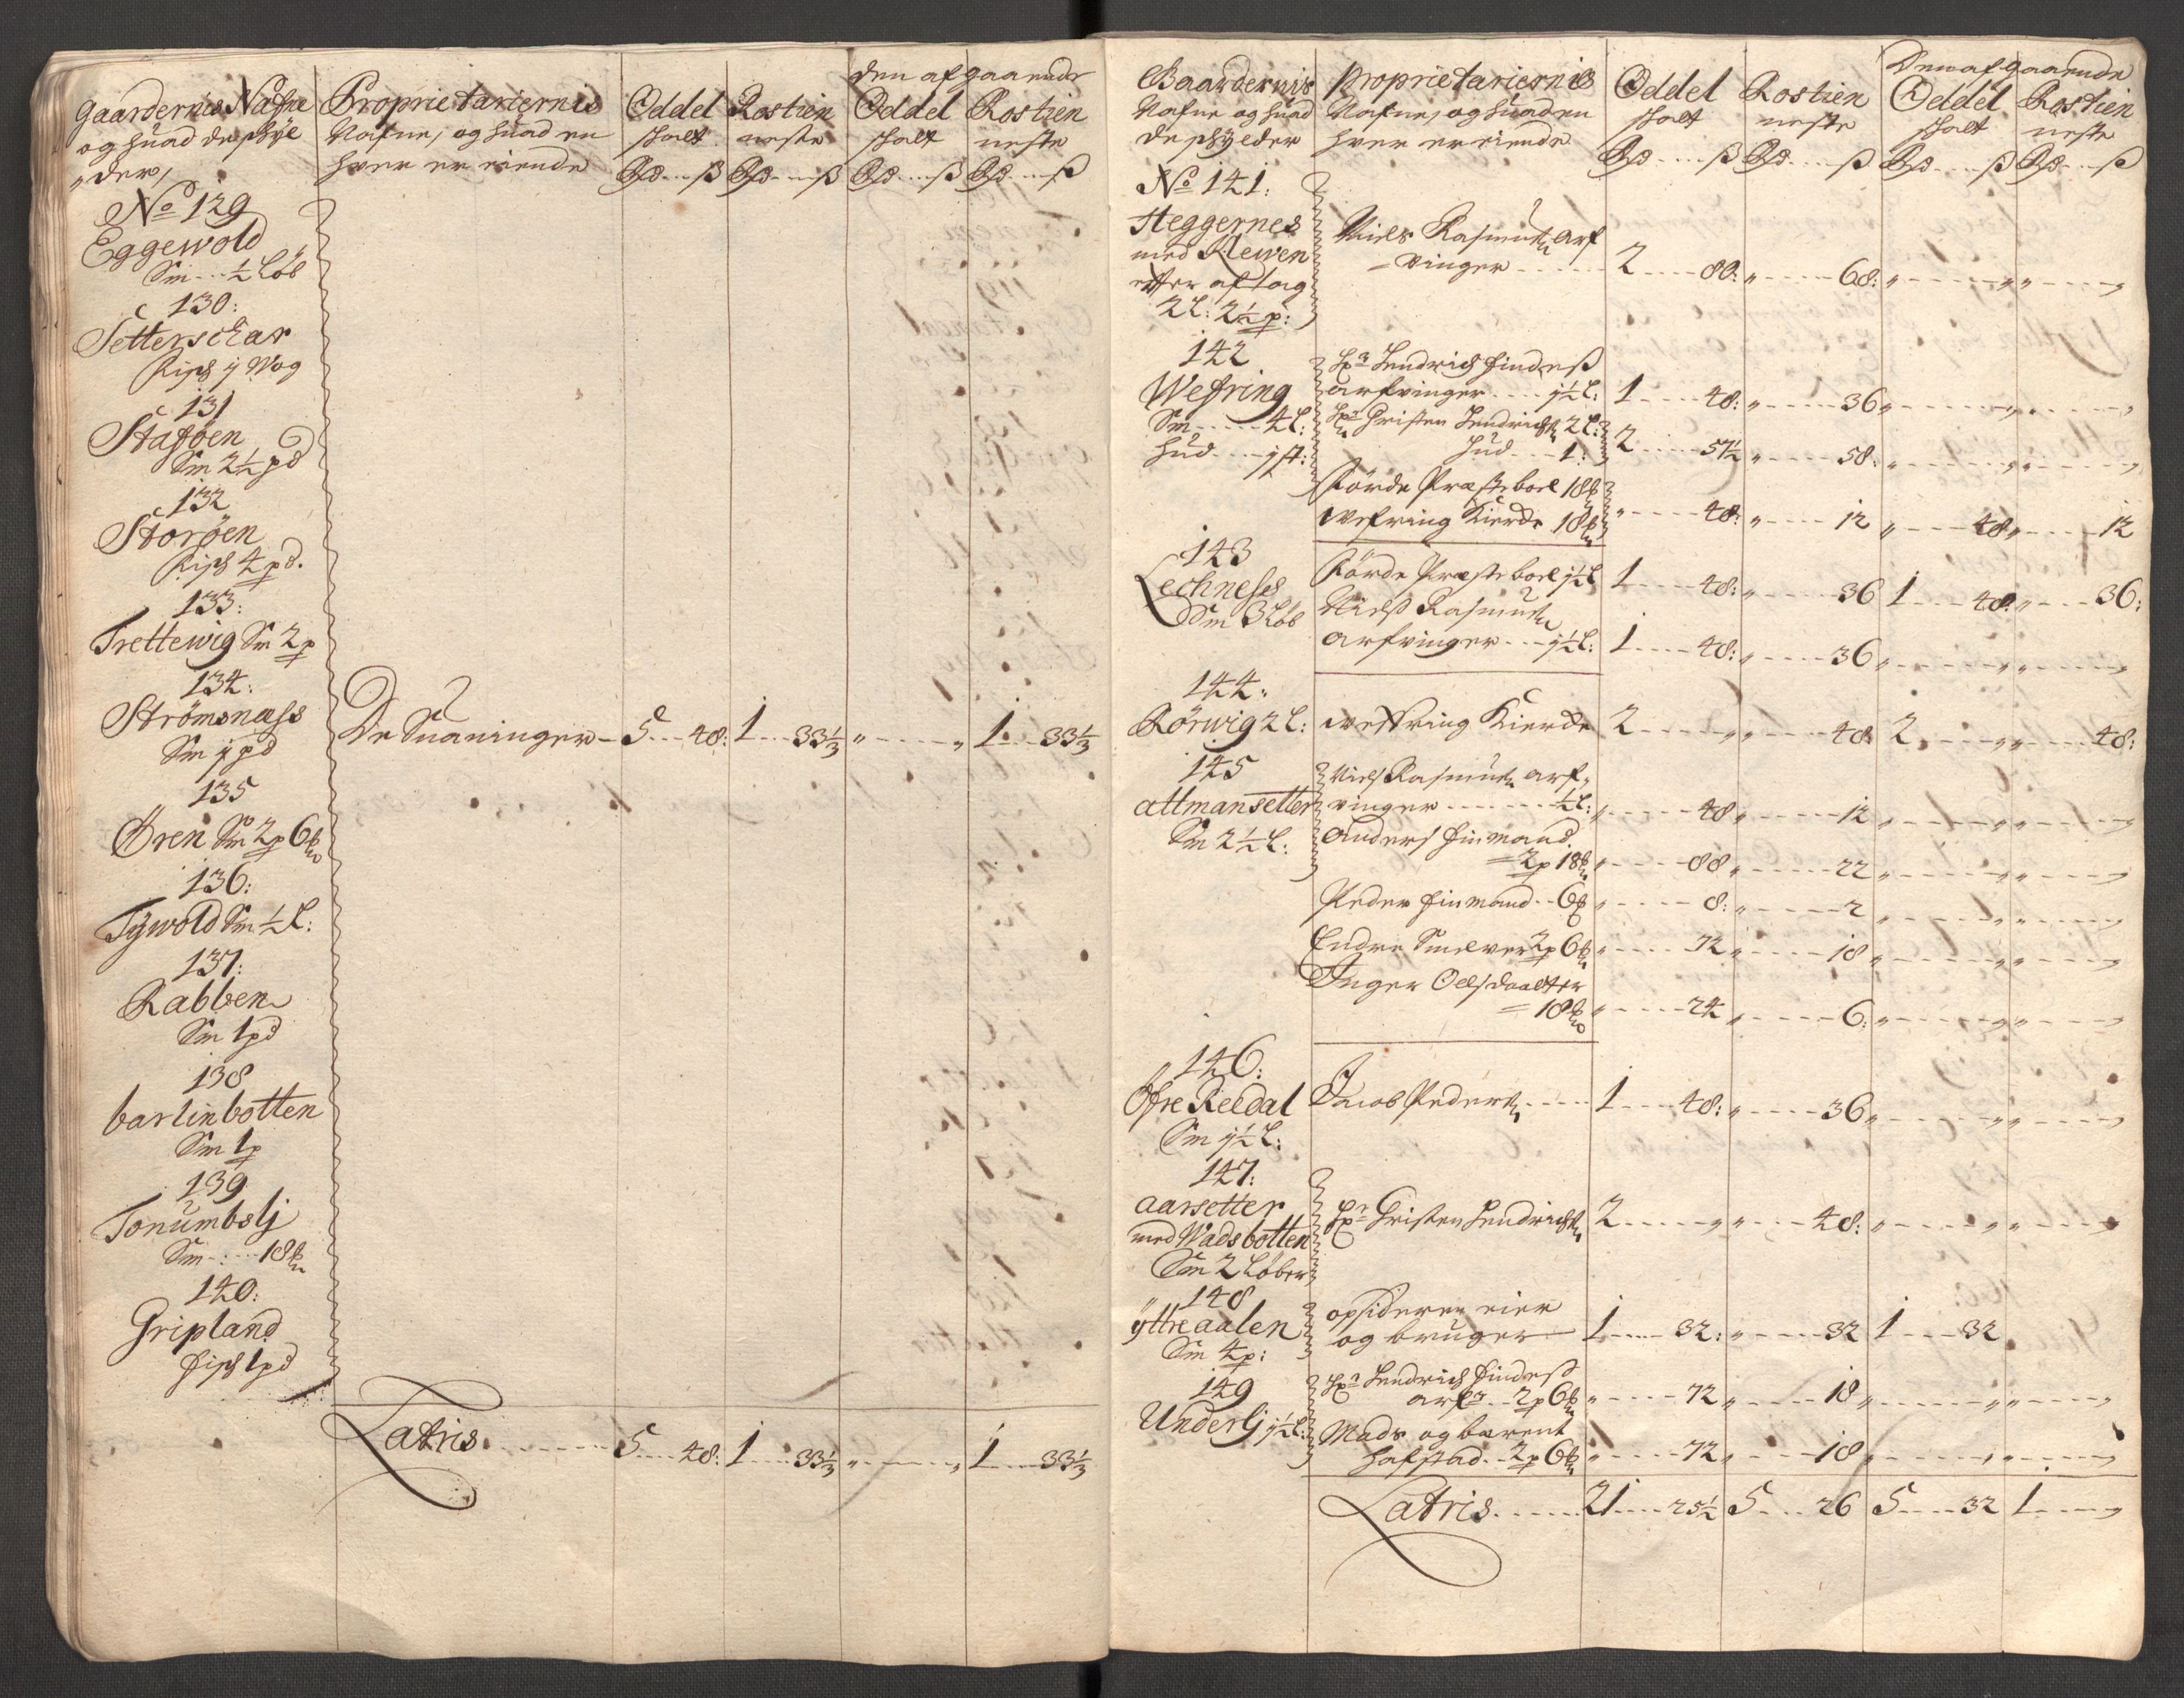 Gaardernes Nafne
og huad de schyl
der,
Proprietariernis
Nafne, og huad en
hver er eiende
Oddel
schatt
Rd ß
Rostien
neste
Rd ß
Den afgaaende
Oddel
schatt
Rd ß
Rostien
neste
Rd ß
No 129
Eggewold
Sm ½ Løb
130:
Setterschar
Fisch j Wog
131
Staföen
Sm 2½ pd
132
Storöen
Fisch 4 pd.
133:
Trettewig Sm 2 p
134:
Strömsness
Sm j pd
De Suaninger 5 48: 1 33⅓ „ „ 1 33⅓
135
Ören Sm 2p 6
136:
Tÿwold Sm ½ L:
137:
Rabben
Sm 1 pd
138
barlinbotten
Sm 1p
139
Tonumbslj
Sm 18
140:
Gripland
Fisch 1 pd
Latris 5 48: 1 33⅓ „ „ 1 33⅓
Gaardernis
Nafne og huad
de schylder
Proprietariernis
Nafne, og huad en
hver er eiende
Oddel
schatt
Rd ß
Rostien
neste
Rd ß
Den afgaaende
Oddel
schatt
Rd ß
Rostien
neste
Rd ß
No 141:
Heggernes
med Klewen
efter aftag
2 L: 2½ p:
Niels Rasmus arf
vinger 2 80: „ 68: „ „ „ „
142
Wefring
Sm 4 L:
hud j st:
Hr Hendrich Findes
arfvinger j½ L: 1 48: „ 36 „ „ „ „
Hr Christen Hendrichs 2 L:
Hud 1: 2 57½ „ 58: „ „ „ „
Förde Præsteboel 18
Wefring Kierche 18 „ 48: „ 12 „ 48 „ 12
143
Lechness
Sm 3 Løb
Förde Præsteboel j½ L 1 48: „ 36 1 48: „ 36:
Niels Rasmus
arfvinger j½ L: 1 48: „ 36 „ „ „ „
144:
Rörwig 2 L: Weffring Kierche 2 „ „ 48 2 „ „ 48:
145
attmansetter
Sm 2½ L:
Niels Rasmus arf
vinger ½ L: „ 48 „ 12 „ „ „ „
Anders Finmand
2p 18 „ 88 „ 22 „ „ „ „
Peder Finmand 6 „ 8: „ 2 „ „ „ „
Endre Smelver 2p 6 „ 72 „ 18 „ „ „ „
Inger Oelsdaatter
18 „ 24 „ 6: „ „ „ „
146:
Öfre Reedal
Sm j½ L:
Jacob Peders 1 48: „ 36 „ „ „ „
147:
aarsetter
med Wadsbotten
Sm 2 Løber
Hr Christen Hendrichs 2 „ „ 48: „ „ „ „
148
ÿttre aalen
Sm 4 p:
opsideren eier
og bruger 1 32: „ 32 1 32
149
Underlj j½ L:
Hr Hendrich Findes
arf 2p 6 „ 72 „ 18 „ „ „ „
Mads og barent
Hafstad 2p 6 „ 72 „ 18 „ „ „ „
Latris 21 25½ 5 26 5 32 1 „